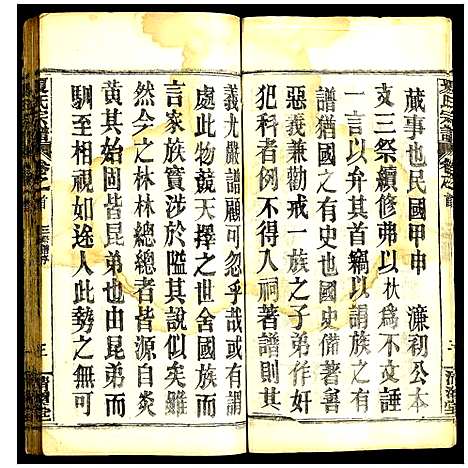 夏氏宗譜 卷之首
蕆事也民國甲申 濂初公本
支三祭續修弗以秋為不文誣
一言以弁其首竊以謂族之有
譜猶國之有史也國史備著善
惡義兼勸戒一族之子弟有作
犯科者例不得入祠著譜則其
義尤嚴譜顧可忽乎哉或有謂
處此物競天擇之世舍國族而
言家族實涉於隘其說似矣雖
然今之林林總總者皆源自炎
黃其始固皆昆弟也由昆弟而
馴至相視如途人此勢之無可
夏氏宗譜 卷之首
清濟堂